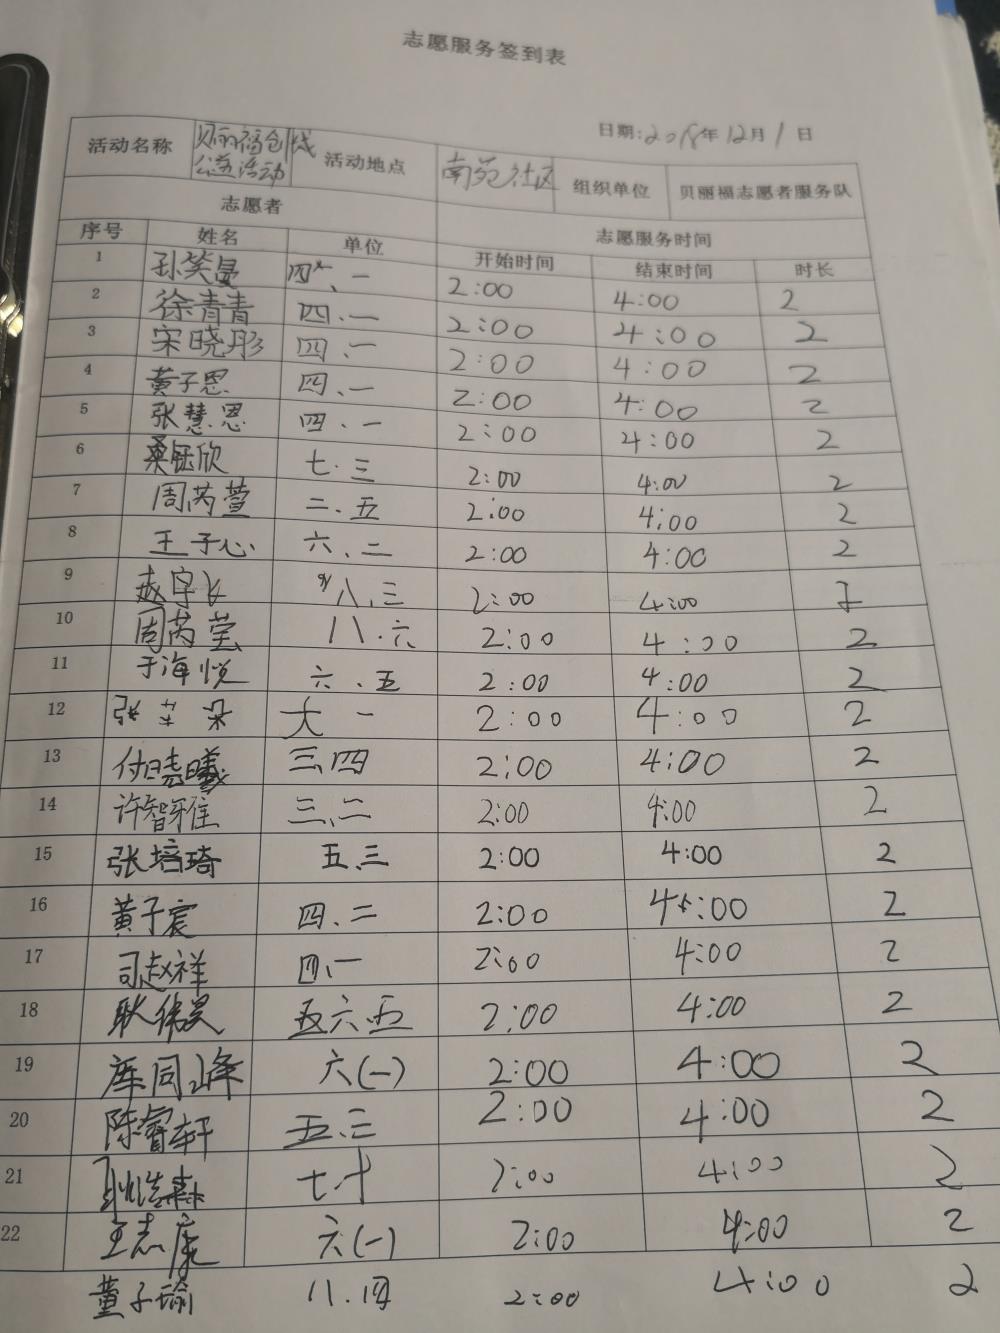 志愿服务签到表
日期:2018年12月1日
活动名称 贝丽福创城公益活动 活动地点 南苑社区 组织单位 贝丽福志愿者服务队
志愿者 志愿服务时间
序号 姓名 单位 开始时间 结束时间 时长
1 孙笑曼 四、一 2:00 4:00 2
2 徐青青 四、一 2:00 4:00 2
3 宋晓彤 四、一 2:00 4:00 2
4 黄子恩 四、一 2:00 4:00 2
5 张慧恩 四、一 2:00 4:00 2
6 桑钰欣 七.三 2:00 4:00 2
7 周芮萱 二.五 2:00 4:00 2
8 王子心 六、二 2:00 4:00 2
9 赵宇 八.三 2:00 4:00
10 周芮莹 八.六 2:00 4:00 2
11 于海悦 六.五 2:00 4:00 2
12 张 朵 一 2:00 4:00 2
13 付晓曦 三.四 2:00 4:00 2
14 许智雅 三、二 2:00 4:00 2
15 张培琦 五.三 2:00 4:00 2
16 黄子宸 四.二 2:00 4:00 2
17 司赵祥 四.一 2:00 4:00 2
18 耿伟昊 五六.五 2:00 4:00 2
19 库同峰 六(一) 2:00 4:00 2
20 陈睿轩 五.三 2:00 4:00 2
21 耿浩森 七.十 2:00 4:00 2
22 王志 六(一) 2:00 4:00 2
董子瑜 八.四 2:00 4:00 2